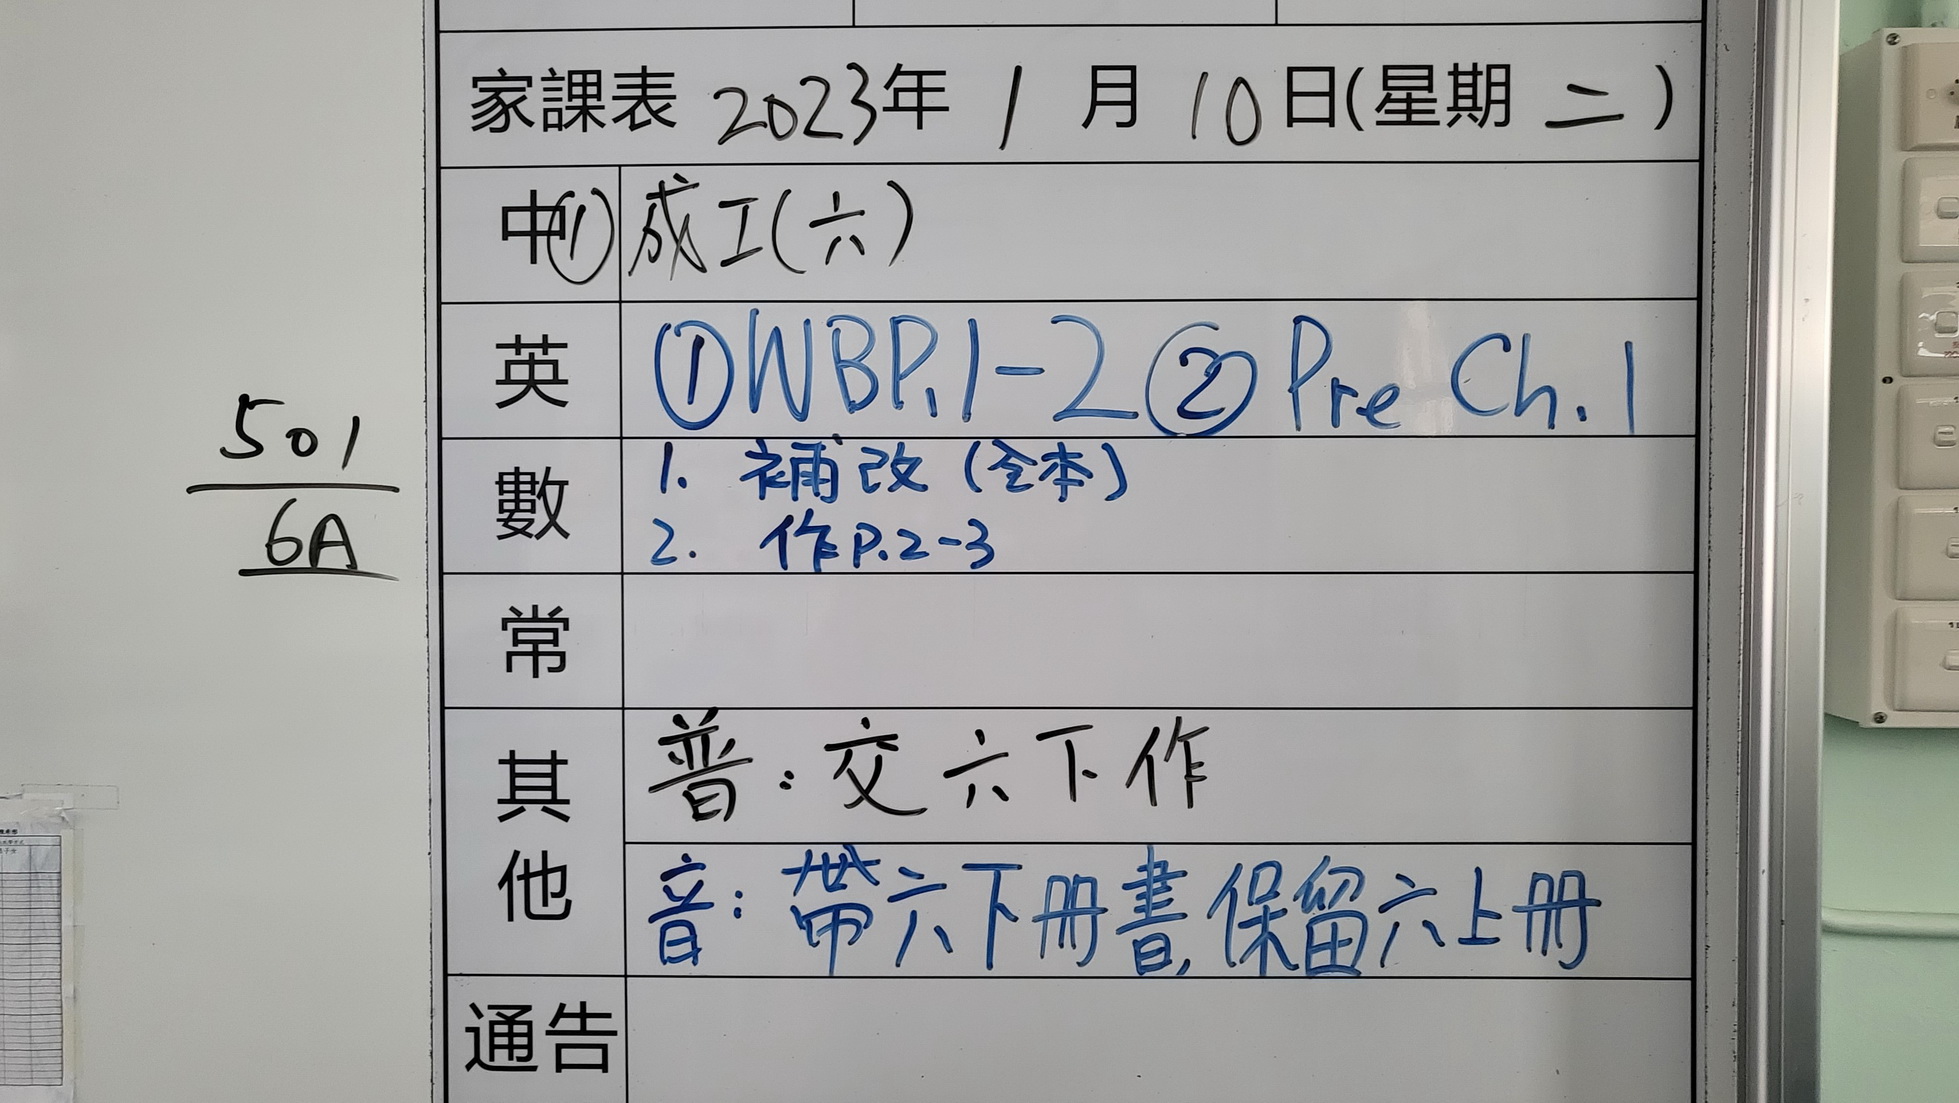 家課表 2023年 1 月 10日(星期 二)
中① 成工(六)
英 ①WBP.1-2 ② Pre Ch.1
501
6A
數 1. 補改(全本)
2. 作P.2-3
常
其他 普:交六下作
音:帶六下冊書,保留六上冊
通告